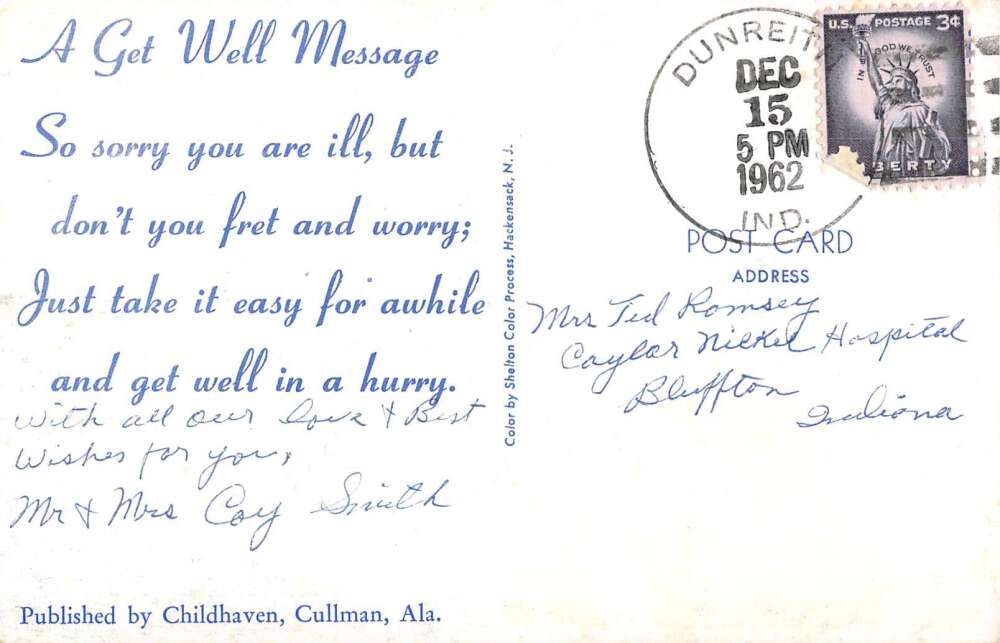 A Get Well Message
So sorry you are ill, but
don't you fret and worry;
Just take it easy for awhile
and get well in a hurry.
With all our love & Best
Wishes for you,
Mr & Mrs Coy Smith
Published by Childhaven, Cullman, Ala.
Color by Shelton Color Process, Hackensack, N. J.
DUNREIT
DEC
15
5 PM
1962
IND.
U.S. POSTAGE 3¢
IN GOD WE TRUST
BERTY
POST CARD
ADDRESS
Mrs Ted Romsey
Caylor Nickel Hospital
Bluffton
Indiana